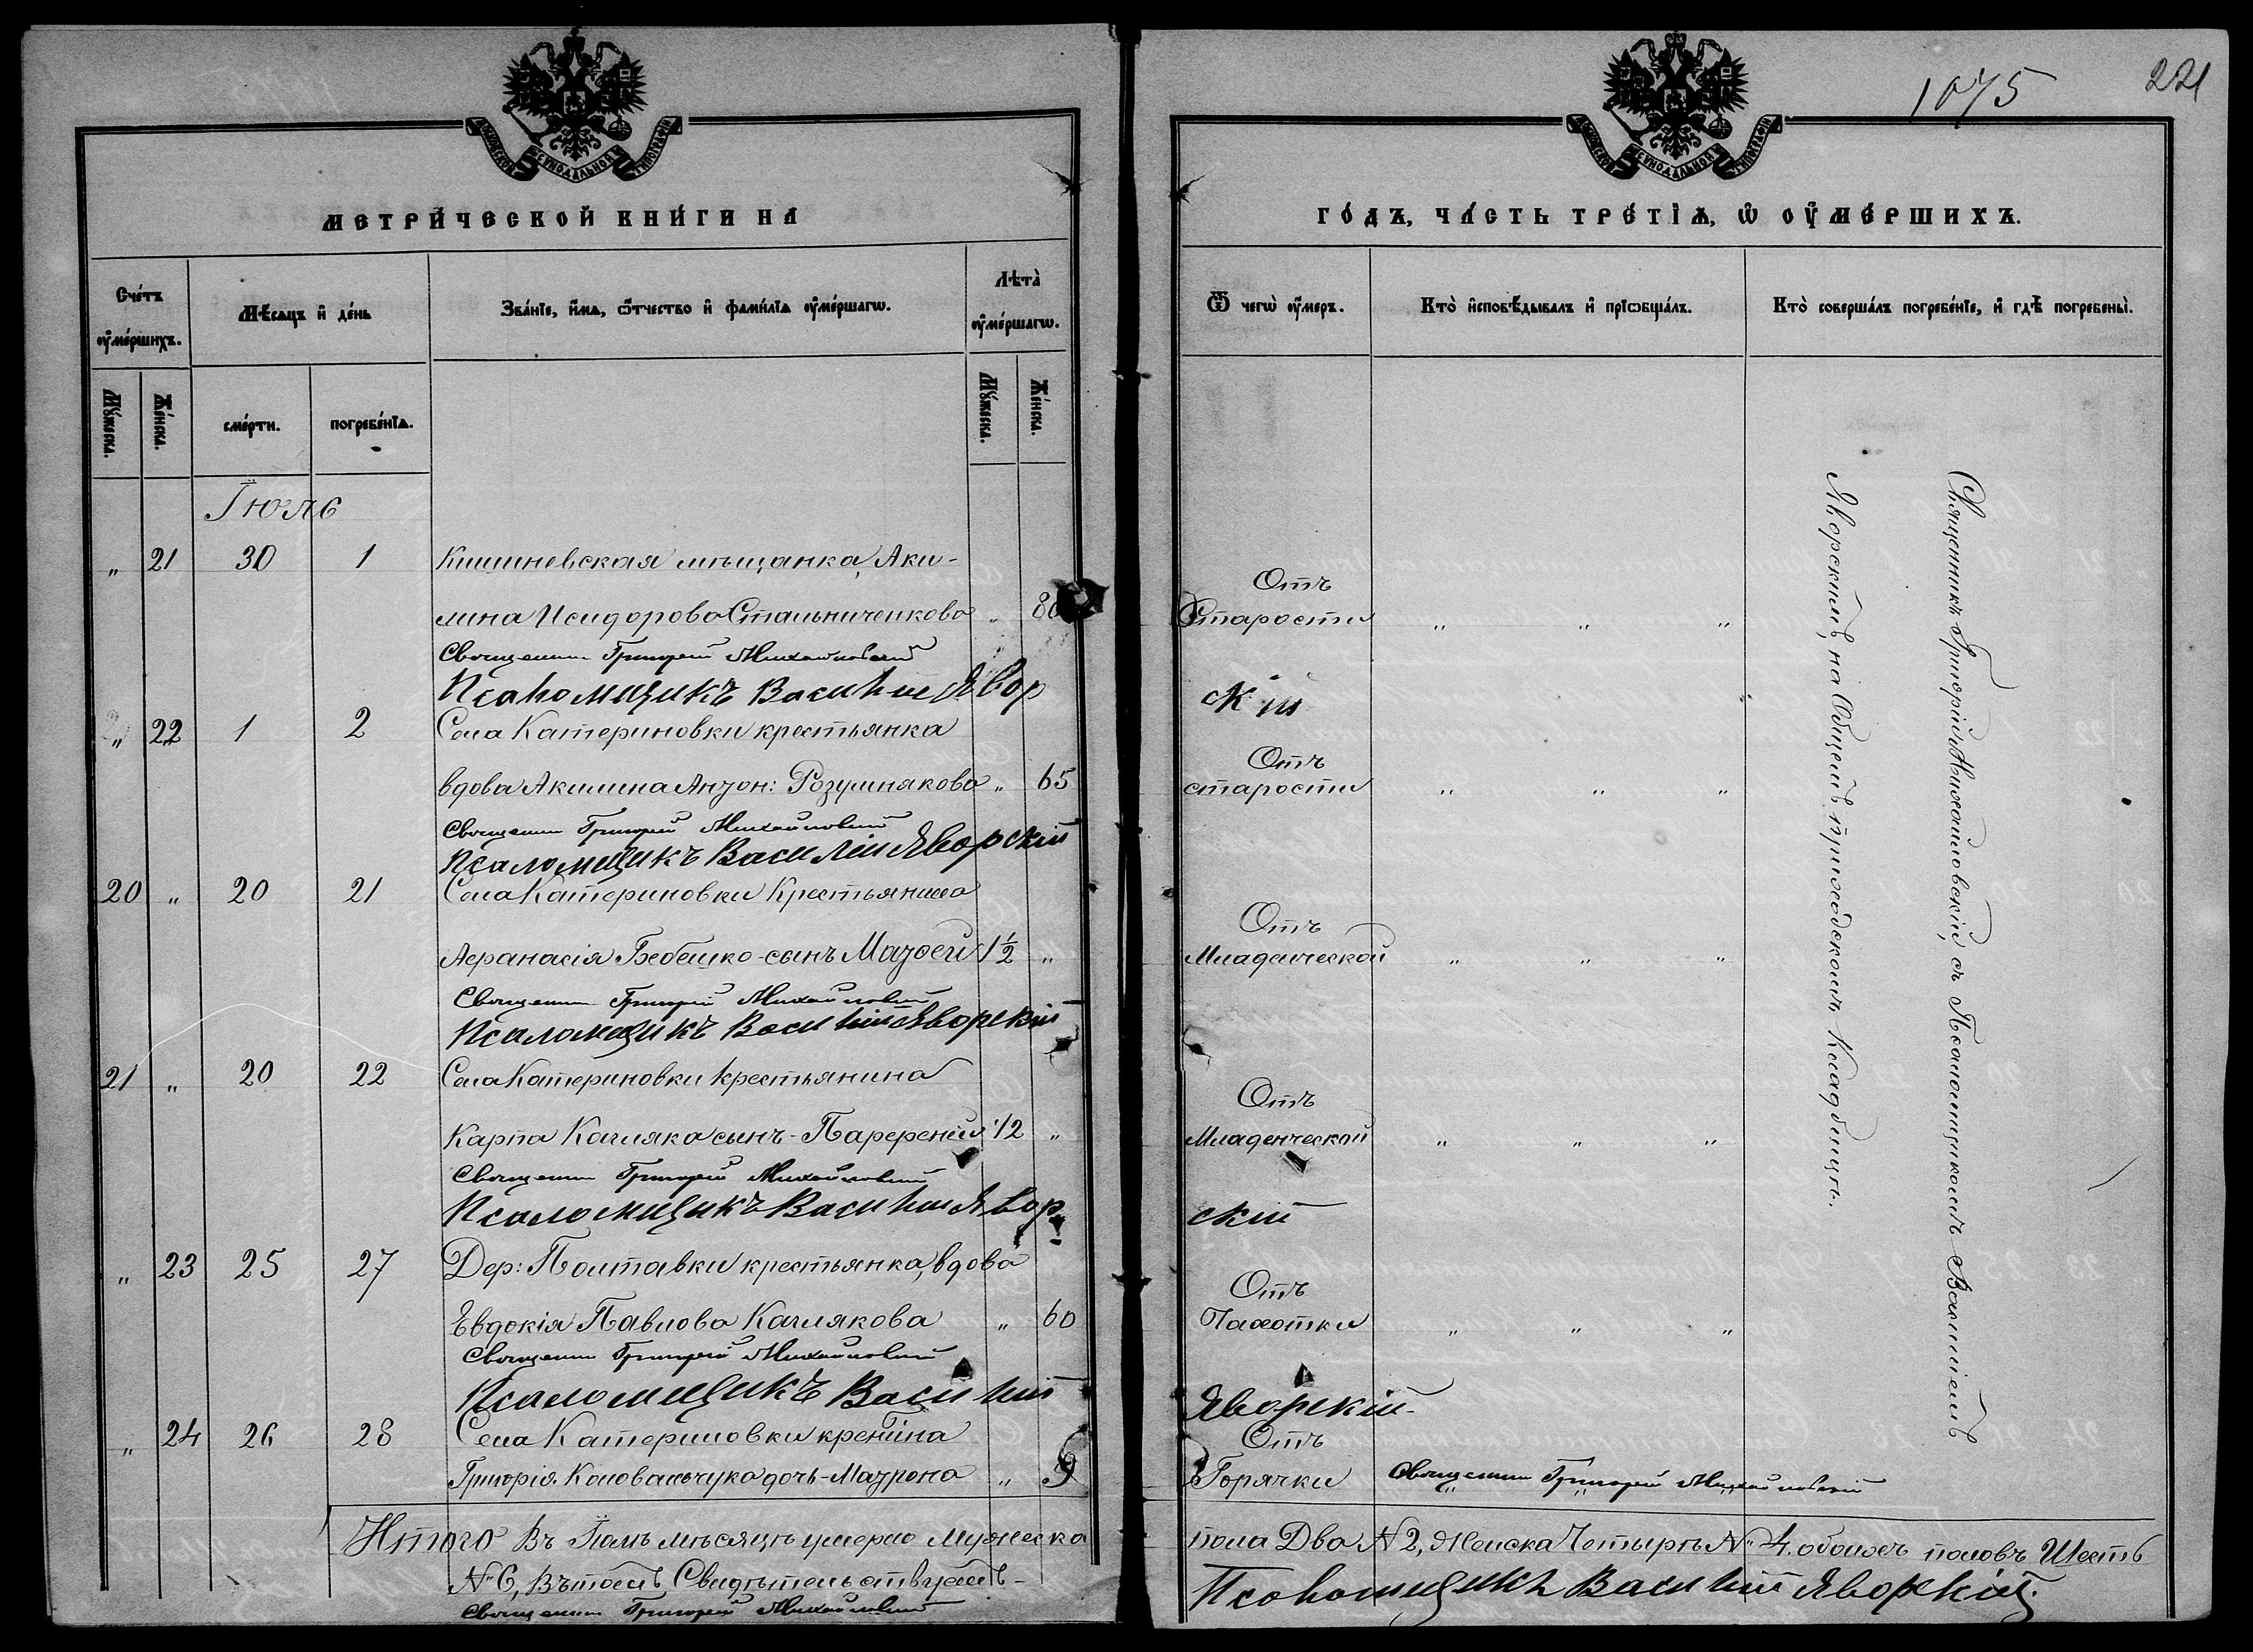 1075
221
МОСКОВСКОЙ СѴНОДАЛЬНОЙ ТИПОГРАФІИ
МОСКОВСКОЙ СѴНОДАЛЬНОЙ ТИПОГРАФІИ
МЕТРИ́ЧЕСКОЙ КНИ́ГИ НА
ГО́ДЪ, ЧА́СТЬ ТРЕ́ТІѦ, Ѡ҆ ОУ҆МЕ́РШИХЪ.
Сче́тъ оу҆ме́ршихъ.
Мѣ́сѧцъ и҆ де́нь
Зва́нїе, и҆́мѧ, ѻ҆́тчество и҆ фами́лїѧ оу҆ме́ршагѡ.
Лѣта̀ оу҆ме́ршагѡ.
Ѿ чегѡ̀ оу҆́меръ.
Кто̀ и҆сповѣ́дывалъ и҆ прїѡбща́лъ.
Кто̀ соверша́лъ погребе́нїе, и҆ гдѣ̀ погребены̀.
Мꙋ́жеска.
Же́нска.
сме́рти.
погребе́нїѧ.
Мꙋ́жеска.
Же́нска.
Іюль
„ 21 30 1 Кишиневская мѣщанка, Аки-
Отъ
лина Исидорова Стальниченкова „ 80 Старости „ „ „
Священникъ Григорій Михайловскій
Псаломщикъ Василій Яворскій
„ 22 1 2 Села Катериновки крестьянка
Отъ
вдова Акилина Антон: Розумнякова „ 65 старости „ „ „
Священникъ Григорій Михайловскій
Псаломщикъ Василій Яворскій
20 „ 20 21 Села Катериновки Крестьянина
Отъ
Афанасія Бебешко - сынъ Матвей 1½ „ Младенческой „ „ „
Священникъ Григорій Михайловскій
Псаломщикъ Василій Яворскій
21 „ 20 22 Села Катериновки крестьянина
Отъ
Карпа Кагляка сынъ - Парфеній 1/2 „ Младенческой „ „ „
Священникъ Григорій Михайловскій
Псаломщикъ Василій Яворскій
„ 23 25 27 Дер: Полтавки крестьянка, вдова
Отъ
Евдокія Павлова Каглякова „ 60 Чахотки „ „ „
Священникъ Григорій Михайловскій
Псаломщикъ Василій Яворскій
„ 24 26 28 Села Катериновки крестина
Отъ
Григорія Коновальчука дочь - Матрона „ 9 Горячки „ „ „
Священникъ Григорій Михайловскій
Священникъ Григорій Михайловскій, съ Псаломщикомъ Василіемъ
Яворскимъ, на Общемъ приходскомъ Кладбищѣ.
Итого въ Іюлѣ мѣсяцѣ умерло Мужеска пола Два № 2, Женска Четырѣ № 4, обоихъ половъ Шесть
№ 6, Въ томъ Свидѣтельствуемъ -
Священникъ Григорій Михайловскій
Псаломщикъ Василій Яворскій.